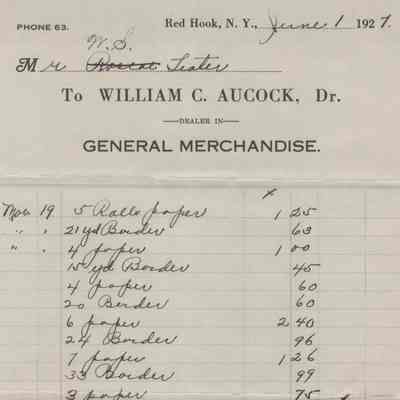 PHONE 63. Red Hook, N. Y., June 1 1927.
W. S.
Mr Teator
To WILLIAM C. AUCOCK, Dr.
DEALER IN
GENERAL MERCHANDISE.
x
Nov 19 5 Rolls paper 1 25
" " 21 yd Border 63
" " 4 paper 1 00
15 yd Border 45
4 paper 60
20 Border 60
6 paper 2 40
24 Border 96
7 paper 1 26
33 Border 99
3 paper 75